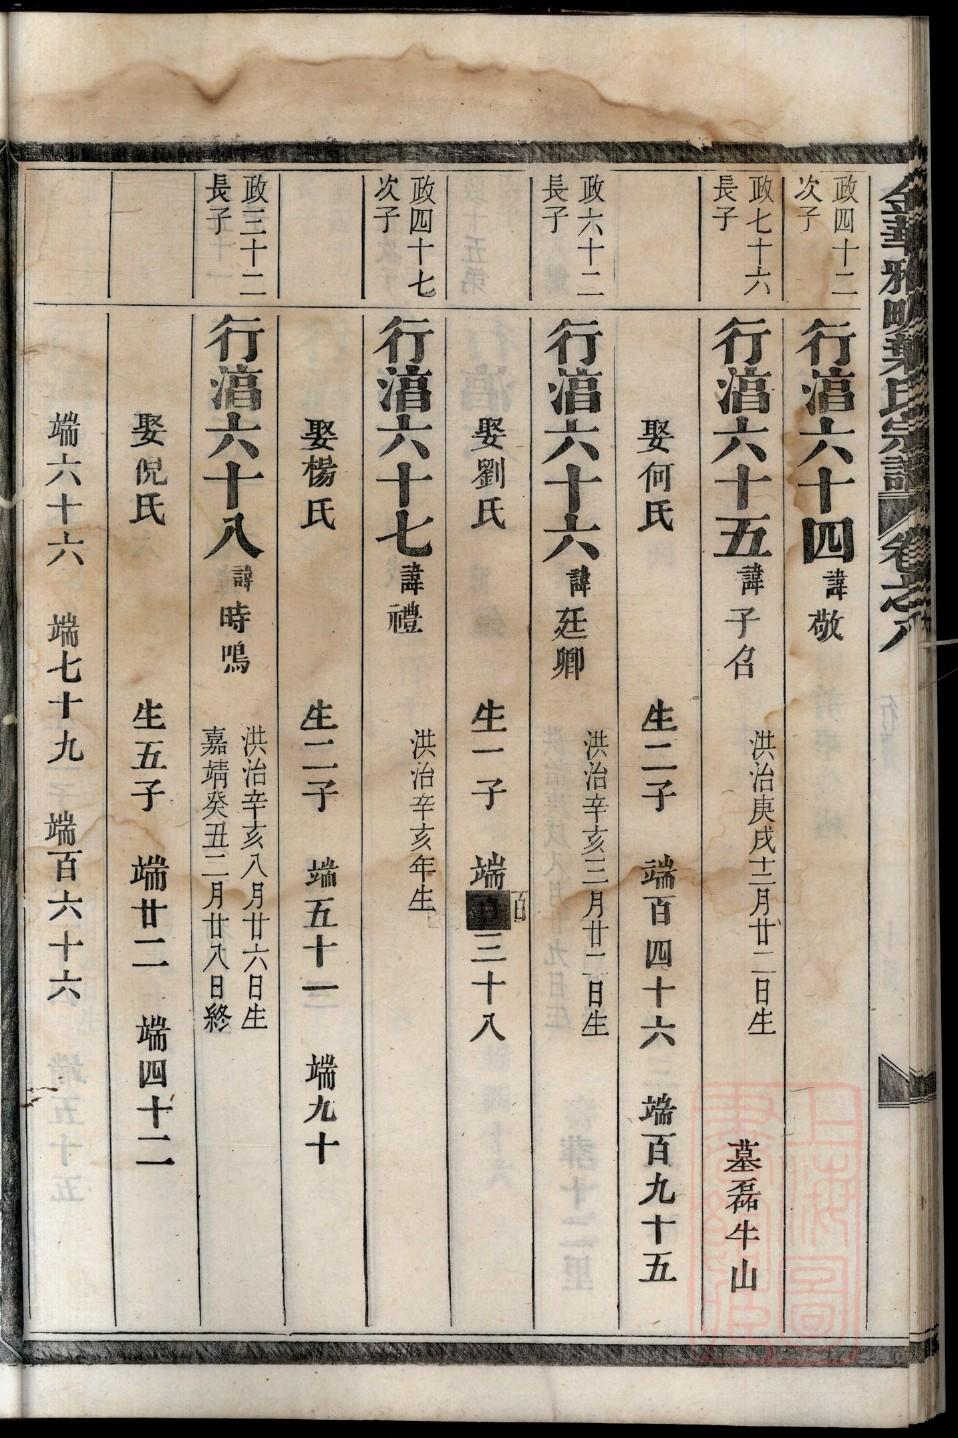 金華雅畈葉氏宗譜 卷之八
政四十二
次子
行湻六十四 諱敬
政七十六
長子
行湻六十五 諱子召 洪治庚戌十二月廿二日生 墓磊牛山
娶何氏 生二子 端百四十六 端百九十五
政六十二
長子
行湻六十六 諱廷卿 洪治辛亥三月廿二日生
娶劉氏 生一子 端百三十八
政四十七
次子
行湻六十七 諱禮 洪治辛亥年生
娶楊氏 生二子 端五十一 端九十
政三十二
長子
行湻六十八 諱時鳴 洪治辛亥八月廿六日生
嘉靖癸丑二月廿八日終
娶倪氏 生五子 端廿二 端四十二
端六十六 端七十九 端百六十六